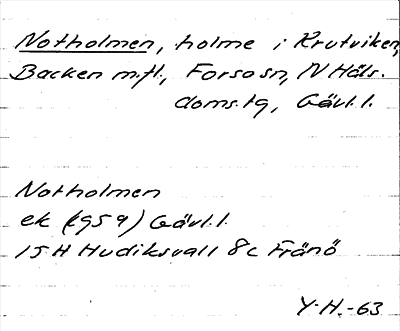 Notholmen, holme i Krutviken,
Backen m.fl., Forsa sn, N Häls.
doms.tg, Gävl.l.
Notholmen
ek (1959) Gävl.l.
15H Hudiksvall 8c Frånö
Y.H.-63